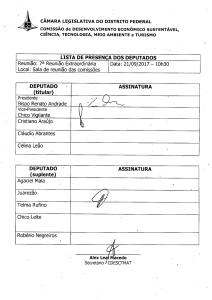 CÂMARA LEGISLATIVA DO DISTRITO FEDERAL
COMISSÃO de DESENVOLVIMENTO ECONÔMICO SUSTENTÁVEL,
CIÊNCIA, TECNOLOGIA, MEIO AMBIENTE e TURISMO
LISTA DE PRESENÇA DOS DEPUTADOS
Reunião: 7ª Reunião Extraordinária Data: 21/09/2017 – 10h30
Local: Sala de reunião das comissões
DEPUTADO (titular) ASSINATURA
Presidente
Bispo Renato Andrade
Vice-Presidente
Chico Vigilante
Cristiano Araújo
Cláudio Abrantes
Celina Leão
DEPUTADO (suplente) ASSINATURA
Agaciel Maia
Juarezão
Telma Rufino
Chico Leite
Robério Negreiros
Alex Leal Macedo
Secretário / CDESCTMAT